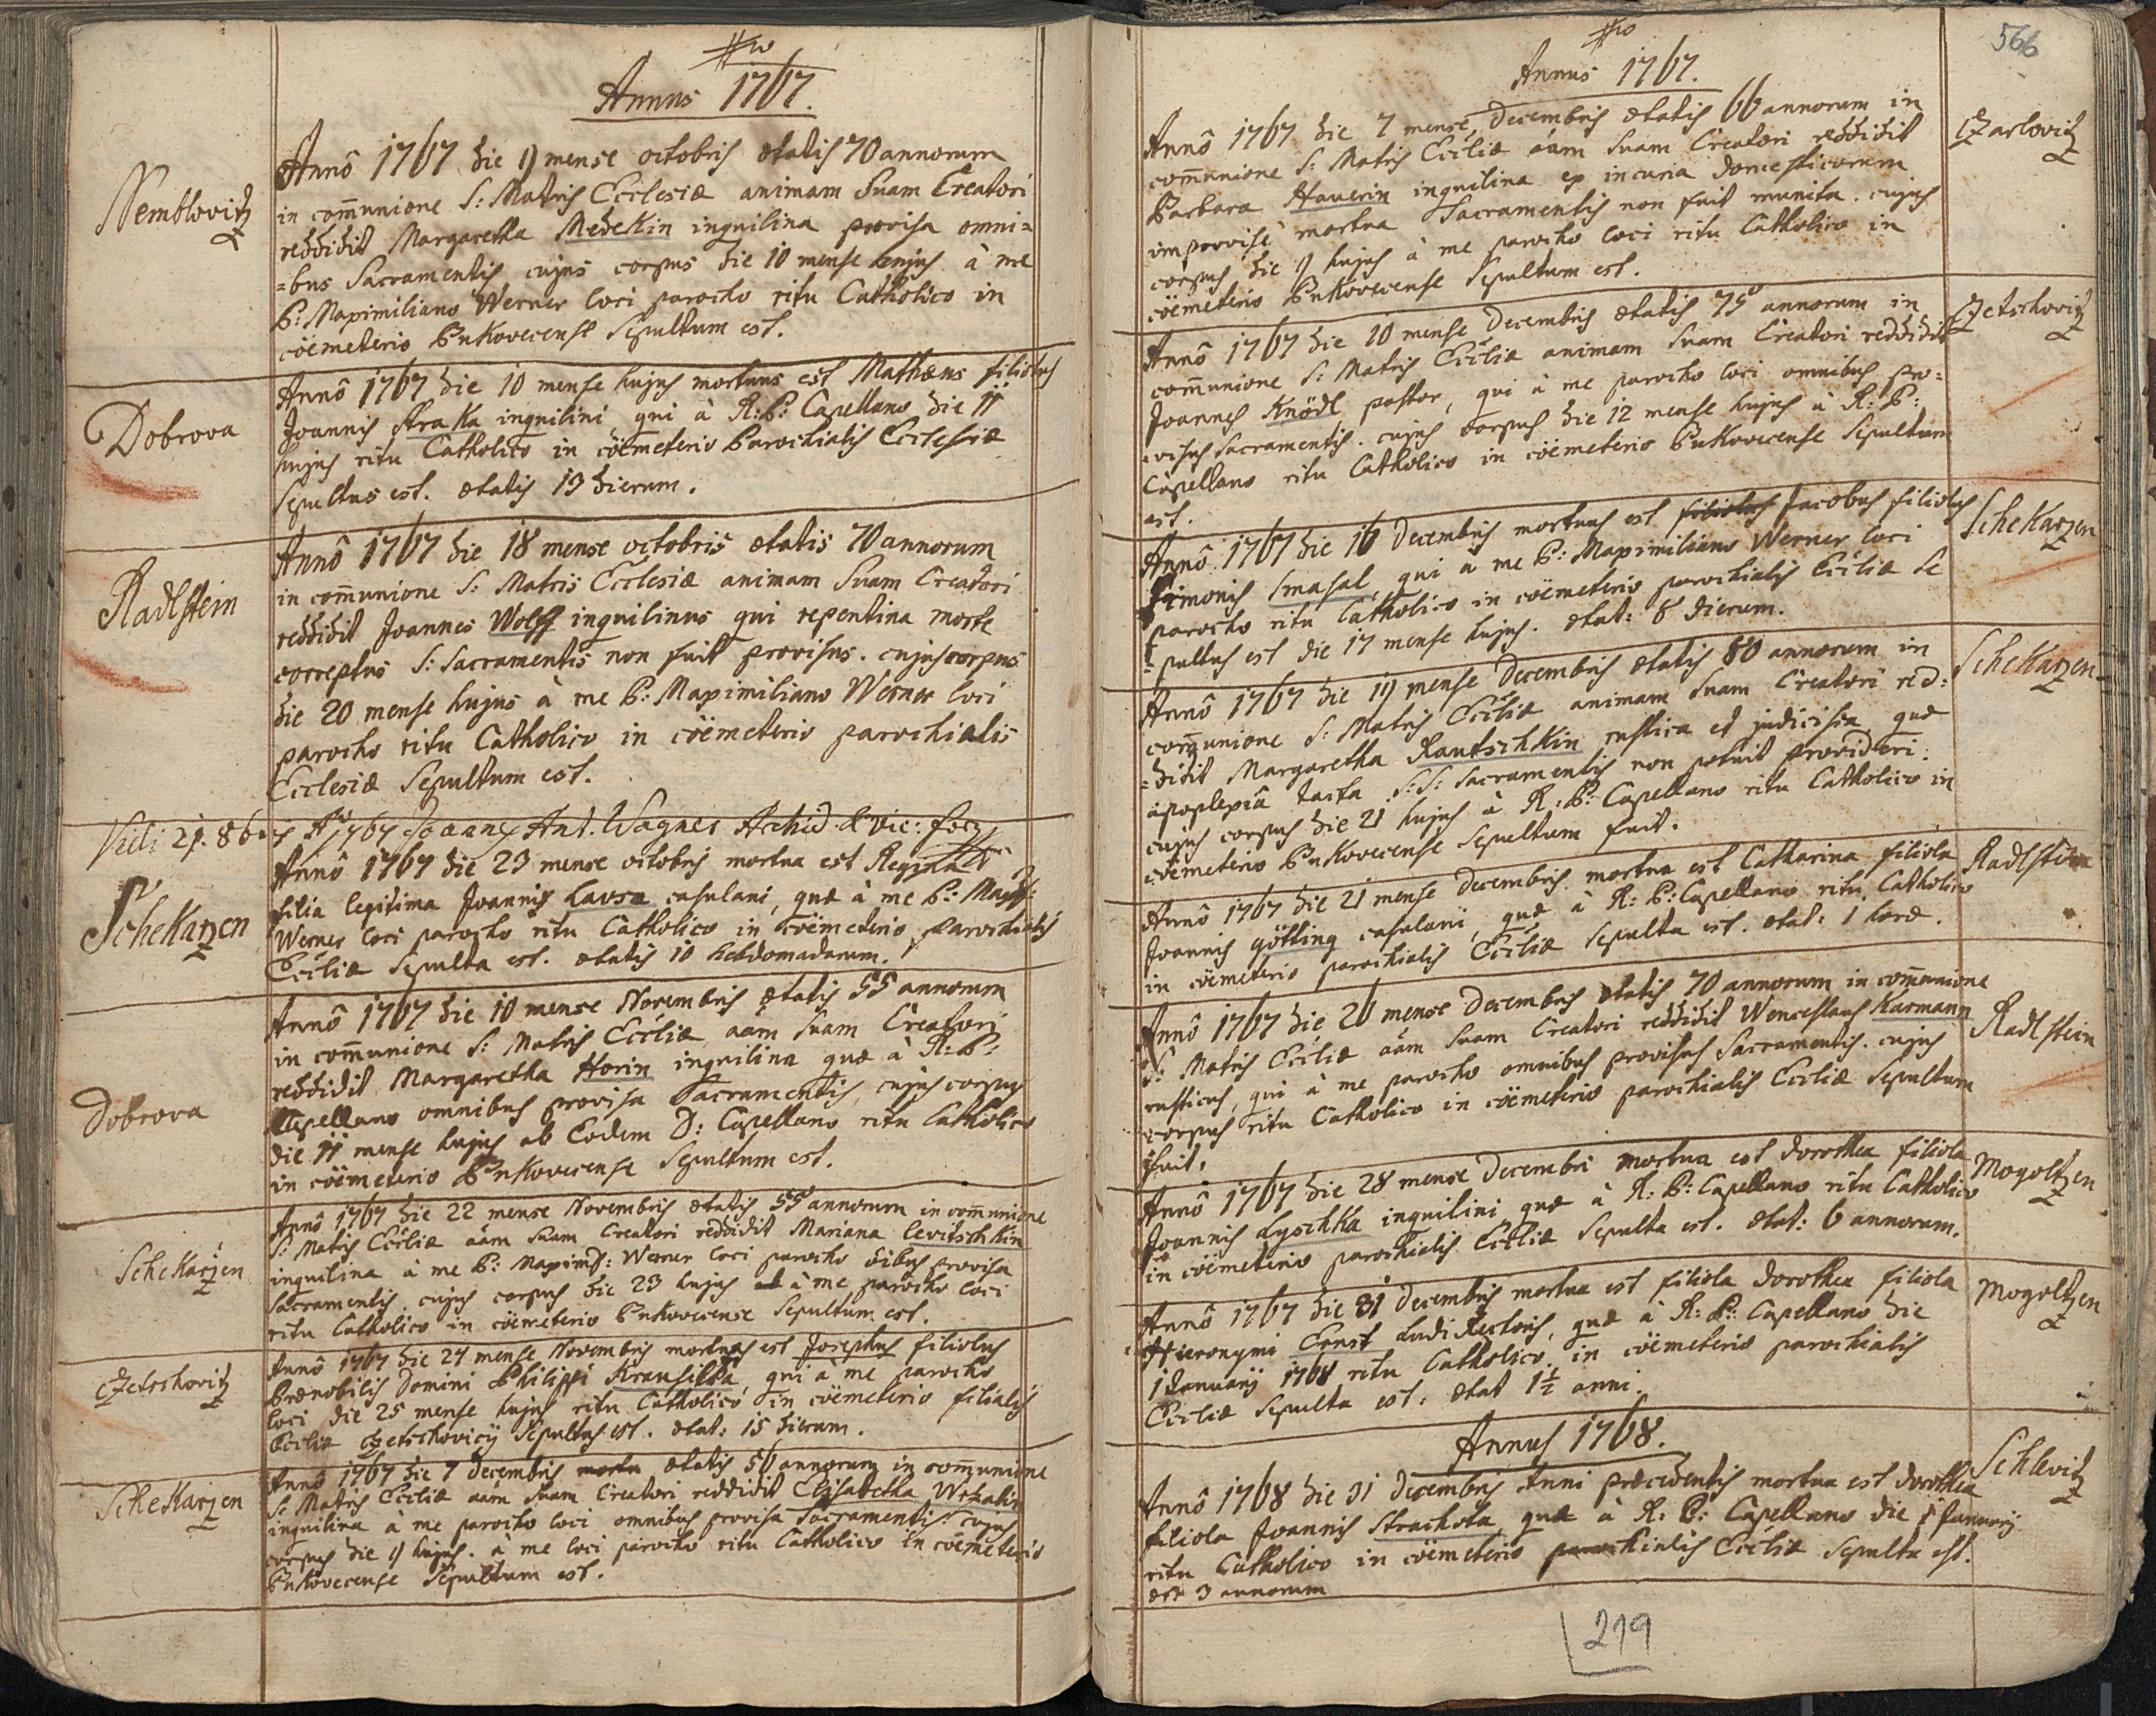 Annus 1767.
Nemtlovitz
Annô 1767 die 9 mense octobris ætatis 70 annorum
in com̄unione S: Matris Ecclesiæ animam Suam Creatori
reddidit Margaretha Medekin inquilina provisa omni=
=bus Sacramentis cujus corpus die 10 mense hujus à me
P: Maximiliano Werner loci parocho ritu Catholico in
cöemeterio Bukovecense Sepultum est.
Dobrova
Annô 1767 die 10 mense hujus mortuus est Mathæus filiolus
Joannis Straka inquilini, qui à R:P: Capellano die 11
hujus ritu Catholico in cöemeterio Parochialis Ecclesiæ
Sepultus est. ætatis 13 dierum.
Radlstein
Annô 1767 die 18 mense octobris ætatis 70 annorum
in com̄unione S: Matris Ecclesiæ animam Suam Creatori
reddidit Joannes Wolff inquilinus qui repentina morte
correptus S: Sacramentis non fuit provisus. cujus corpus
die 20 mense hujus à me P: Maximiliano Werner loci
parocho ritu Catholico in cöemeterio parochialis
Ecclesiæ Sepultum est.
Vidi 21. 8bris Aô 1767 Joannes Ant. Wagner Archid. & Vic: for:
Schekarzen
Annô 1767 die 23 mense octobris mortua est Regina
filia legitima Joannis Lavsa casulani, quæ à me P: Max:
Werner loci parocho ritu Catholico in cöemeterio Parochialis
Eccliæ Sepulta est. ætatis 10 hebdomadarum.
Dobrova
Annô 1767 die 10 mense Novembris ætatis 55 annorum
in com̄unione S: Matris Eccliæ aām Suam Creatori
reddidit Margaretha Horin inquilina quæ à R:P:
Capellano omnibus provisa Sacramentis, cujus corpus
die 11 mense hujus ab Eodem D: Capellano ritu Catholico
in cöemeterio Bukovecense Sepultum est.
Schekarzen
Annô 1767 die 22 mense Novembris ætatis 55 annorum in com̄unione
S: Matris Eccliæ aām suam Creatori reddidit Mariana Levitschkin
inquilina à me P: Maximil: Werner loci parocho oībus provisa
Sacramentis. cujus corpus die 23 hujus à me parocho loci
ritu Catholico in cöemeterio Bukovecense Sepultum est.
Czetschovitz
Annô 1767 die 24 mense Novembris mortuus est Josephus filiolus
Prænobilis Domini Philippi Krausilka, qui à me parocho
loci die 25 mense hujus ritu Catholico in cöemeterio filialis
Eccliæ Czetschovicÿ Sepultus est. ætat: 15 dierum.
Schekarzen
Annô 1767 die 7 decembris ætatis 56 annorum in com̄unione
S: Matris Eccliæ aām suam Creatori reddidit Elisabetha
inquilina à me parocho loci omnibus provisa Sacramentis. cujus
corpus die 9 hujus. à me loci parocho ritu Catholico in cöemeterio
Bukovecense Sepultum est.
566
Annus 1767.
Czarlovitz
Annô 1767 die 7 mense Decembris ætatis 66 annorum in
com̄unione S: Matris Eccliæ aām Suam Creatori reddidit
Barbara Haverin inquilina ex incuria domesticorum
improvise mortua Sacramentis non fuit munita. cujus
corpus die 9 hujus à me parocho loci ritu Catholico in
cöemeterio Bukovecense Sepultum est.
Czetschovitz
Annô 1767 die 10 mense Decembris ætatis 75 annorum in
com̄unione S: Matris Eccliæ animam Suam Creatori reddidit
Joannes Knödl pastor, qui à me parocho loci omnibus pro=
=visus Sacramentis. cujus corpus die 12 mense hujus à R:P:
Capellano ritu Catholico in cöemeterio Bukovecense Sepultum
est.
Schekarzen
Annô 1767 die 16 Decembris mortuus est filiolus Jacobus filiolus
Simonis Smasal, qui à me P: Maximiliano Werner loci
parocho ritu Catholico in cöemeterio parochialis Eccliæ Se
=pultus est die 17 mense hujus. ætat: 8 dierum.
Schekarzen
Annô 1767 die 19 mense Decembris ætatis 80 annorum in
com̄unione S: Matris Eccliæ animam Suam Creatori red=
=didit Margaretha Rautschkin rustica et judicissa quæ
apoplexiâ tacta S:S: Sacramentis non potuit provideri.
cujus corpus die 21 hujus à R:P: Capellano ritu Catholico in
cöemeterio Bukovecense Sepultum fuit.
Radlstein
Annô 1767 die 21 mense Decembris mortua est Catharina filiola
Joannis götting casulani, quæ à R:P: Capellano ritu Catholico
in cöemeterio parochialis Eccliæ Sepulta est. ætat: 1 horæ.
Radlstein
Annô 1767 die 26 mense Decembris ætatis 70 annorum in com̄unione
S: Matris Eccliæ aām Suam Creatori reddidit Wenceslaus Karmann
rusticus, qui à me parocho omnibus provisus Sacramentis. cujus
corpus ritu Catholico in cöemeterio parochialis Eccliæ Sepultum
fuit.
Mogoltzen
Annô 1767 die 28 mense Decembri mortua est dorothea filiola
Joannis Lyschka inquilini quæ à R:P: Capellano ritu Catholico
in cöemeterio parochialis Eccliæ Sepulta est. ætat: 6 annorum.
Mogoltzen
Annô 1767 die 31 Decembris mortua est filiola dorothea filiola
Hieronymi Ernst Ludi Rectoris, quæ à R:P: Capellano die
1 Januarÿ 1768 ritu Catholico in cöemeterio parochialis
Eccliæ Sepulta est. ætat 1½ anni.
Annus 1768.
Schlovitz
Annô 1768 die 31 Decembris Anni præcedentis mortua est dorothea
filiola Joannis Strachota quæ à R:P: Capellano die 1 Januarÿ
ritu Catholico in cöemeterio parochialis Eccliæ Sepulta est.
æt 3 annorum
219